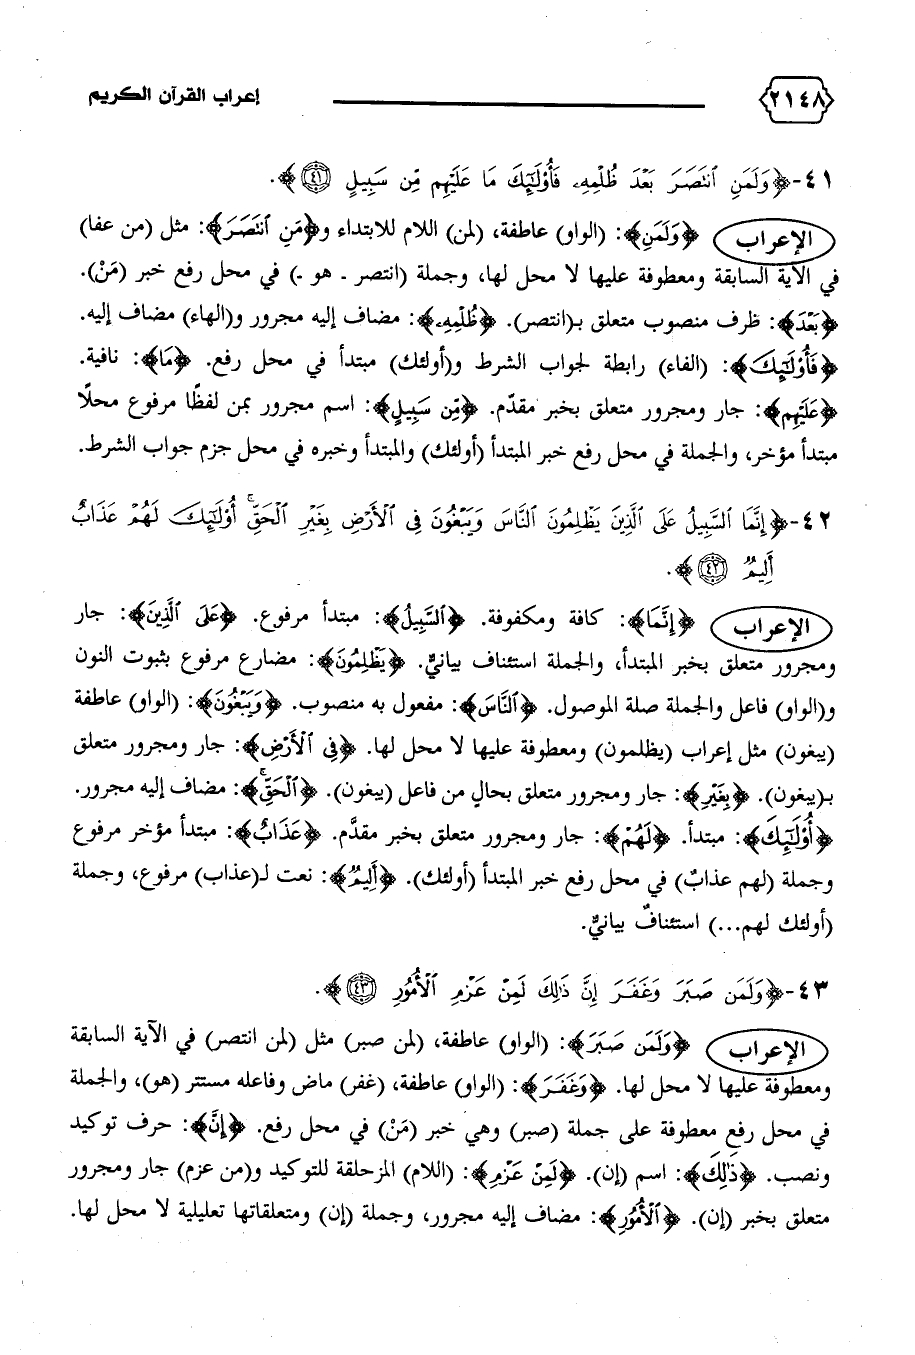 ٢١٤٨ إعراب القرآن الكريم
٤١-﴿وَلَمَنِ ٱنتَصَرَ بَعْدَ ظُلْمِهِۦ فَأُو۟لَٰٓئِكَ مَا عَلَيْهِم مِّن سَبِيلٍ ٤١﴾.
الإعراب ﴿وَلَمَنِ﴾: (الواو) عاطفة، (لمن) اللام للابتداء و﴿مَنِ ٱنتَصَرَ﴾: مثل (من عفا)
في الآية السابقة ومعطوفة عليها لا محل لها، وجملة (انتصر ـ هو ـ) في محل رفع خبر (مَنْ).
﴿بَعْدَ﴾: ظرف منصوب متعلق بـ(انتصر). ﴿ظُلْمِهِۦ﴾: مضاف إليه مجرور و(الهاء) مضاف إليه.
﴿فَأُو۟لَٰٓئِكَ﴾: (الفاء) رابطة لجواب الشرط و(أولئك) مبتدأ في محل رفع. ﴿مَا﴾: نافية.
﴿عَلَيْهِم﴾: جار ومجرور متعلق بخبر مقدّم. ﴿مِّن سَبِيلٍ﴾: اسم مجرور بمن لفظًا مرفوع محلًا
مبتدأ مؤخر، والجملة في محل رفع خبر المبتدأ (أولئك) والمبتدأ وخبره في محل جزم جواب الشرط.
٤٢-﴿إِنَّمَا ٱلسَّبِيلُ عَلَى ٱلَّذِينَ يَظْلِمُونَ ٱلنَّاسَ وَيَبْغُونَ فِى ٱلْأَرْضِ بِغَيْرِ ٱلْحَقِّ ۚ أُو۟لَٰٓئِكَ لَهُمْ عَذَابٌ
أَلِيمٌ ٤٢﴾.
الإعراب ﴿إِنَّمَا﴾: كافة ومكفوفة. ﴿ٱلسَّبِيلُ﴾: مبتدأ مرفوع. ﴿عَلَى ٱلَّذِينَ﴾: جار
ومجرور متعلق بخبر المبتدأ، والجملة استئناف بيانيٌّ. ﴿يَظْلِمُونَ﴾: مضارع مرفوع بثبوت النون
و(الواو) فاعل والجملة صلة الموصول. ﴿ٱلنَّاسَ﴾: مفعول به منصوب. ﴿وَيَبْغُونَ﴾: (الواو) عاطفة
(يبغون) مثل إعراب (يظلمون) ومعطوفة عليها لا محل لها. ﴿فِى ٱلْأَرْضِ﴾: جار ومجرور متعلق
بـ(يبغون). ﴿بِغَيْرِ﴾: جار ومجرور متعلق بحالٍ من فاعل (يبغون). ﴿ٱلْحَقِّ ۚ﴾: مضاف إليه مجرور.
﴿أُو۟لَٰٓئِكَ﴾: مبتدأ. ﴿لَهُمْ﴾: جار ومجرور متعلق بخبر مقدَّم. ﴿عَذَابٌ﴾: مبتدأ مؤخر مرفوع
وجملة (لهم عذابٌ) في محل رفع خبر المبتدأ (أولئك). ﴿أَلِيمٌ﴾: نعت لـ(عذاب) مرفوع، وجملة
(أولئك لهم...) استئنافٌ بيانيٌّ.
٤٣-﴿وَلَمَن صَبَرَ وَغَفَرَ إِنَّ ذَٰلِكَ لَمِنْ عَزْمِ ٱلْأُمُورِ ٤٣﴾.
الإعراب ﴿وَلَمَن صَبَرَ﴾: (الواو) عاطفة، (لمن صبر) مثل (لمن انتصر) في الآية السابقة
ومعطوفة عليها لا محل لها. ﴿وَغَفَرَ﴾: (الواو) عاطفة، (غفر) ماض وفاعله مستتر (هو)، والجملة
في محل رفع معطوفة على جملة (صبر) وهي خبر (مَنْ) في محل رفع. ﴿إِنَّ﴾: حرف توكيد
ونصب. ﴿ذَٰلِكَ﴾: اسم (إن). ﴿لَمِنْ عَزْمِ﴾: (اللام) المزحلقة للتوكيد و(من عزم) جار ومجرور
متعلق بخبر (إن). ﴿ٱلْأُمُورِ﴾: مضاف إليه مجرور، وجملة (إن) ومتعلقاتها تعليلية لا محل لها.